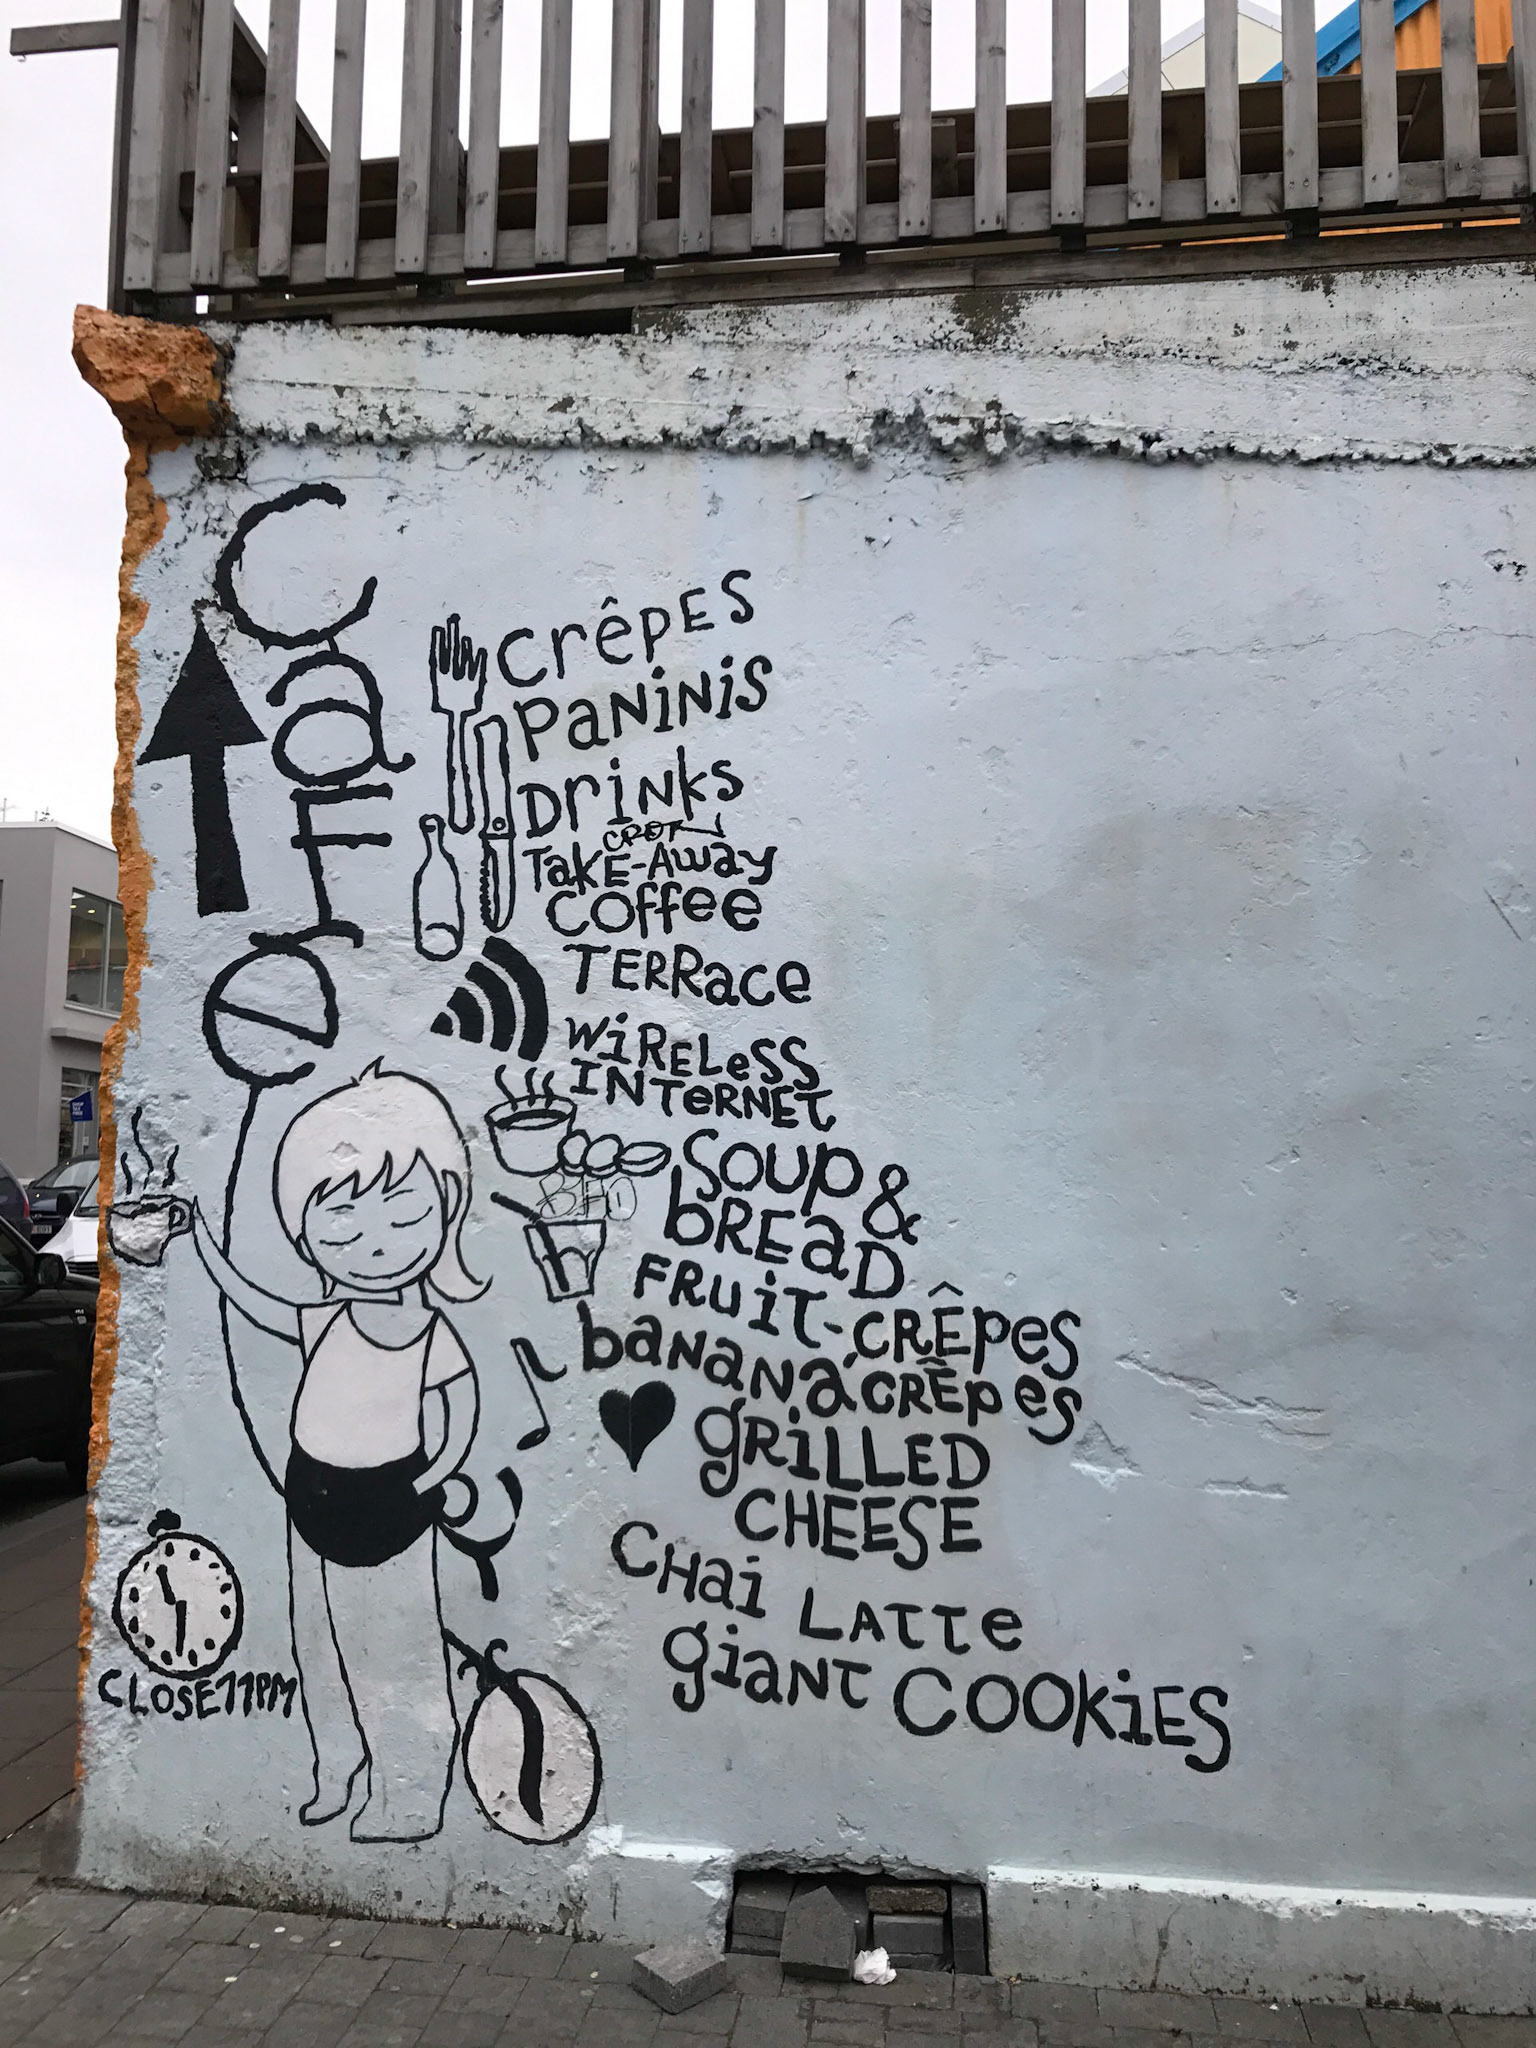 CaFe
crêpes
PaNiNis
Drinks
Take-Away
coffee
TERRace
WiReLeSS
INTeRNET
Soup &
bREaD
FRUiT-CRÊPes
baNaNa CRÊPes
gRiLLED
CHEESE
CHai LATTe
giaNT COOKiES
CLOSE 11PM